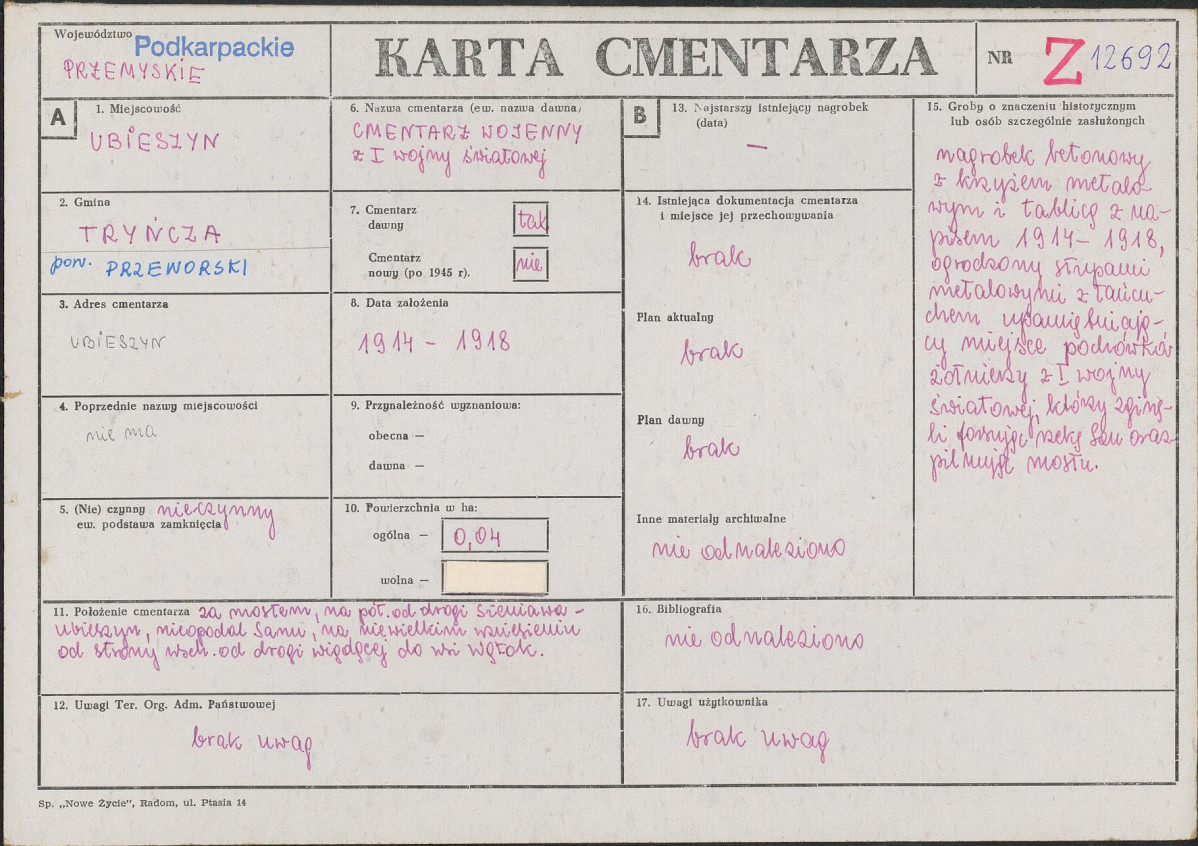 Województwo Podkarpackie
PRZEMYSKIE
KARTA CMENTARZA
NR Z 12692
A
1. Miejscowość
UBIESZYN
2. Gmina
TRYŃCZA
pow. PRZEWORSKI
3. Adres cmentarza
UBIESZYN
4. Poprzednie nazwy miejscowości
nie ma
5. (Nie) czynny nieczynny
ew. podstawa zamknięcia
6. Nazwa cmentarza (ew. nazwa dawna)
CMENTARZ WOJENNY
z I wojny światowej
7. Cmentarz
dawny tak
Cmentarz
nowy (po 1945 r). nie
8. Data założenia
1914 - 1918
9. Przynależność wyznaniowa:
obecna —
dawna —
10. Powierzchnia w ha:
ogólna — 0,04
wolna —
11. Położenie cmentarza za mostem, na pół. od drogi Sieniawa -
Ubieszyn, nieopodal Sanu, na niewielkim wzniesieniu
od strony wsch. od drogi wiodącej do wsi Wgłok.
12. Uwagi Ter. Org. Adm. Państwowej
brak uwag
B
13. Najstarszy istniejący nagrobek
(data)
—
14. Istniejąca dokumentacja cmentarza
i miejsce jej przechowywania
brak
Plan aktualny
brak
Plan dawny
brak
Inne materiały archiwalne
nie odnaleziono
15. Groby o znaczeniu historycznym
lub osób szczególnie zasłużonych
nagrobek betonowy
z krzyżem metalo-
wym i tablicą z na-
pisem 1914-1918,
ogrodzony słupami
metalowymi z łańcu-
chem upamiętniają-
cy miejsce pochówków
żołnierzy z I wojny
światowej, którzy zginę-
li forsując rzekę San oraz
pilnując mostu.
16. Bibliografia
nie odnaleziono
17. Uwagi użytkownika
brak uwag
Sp. „Nowe Życie", Radom, ul. Ptasia 14